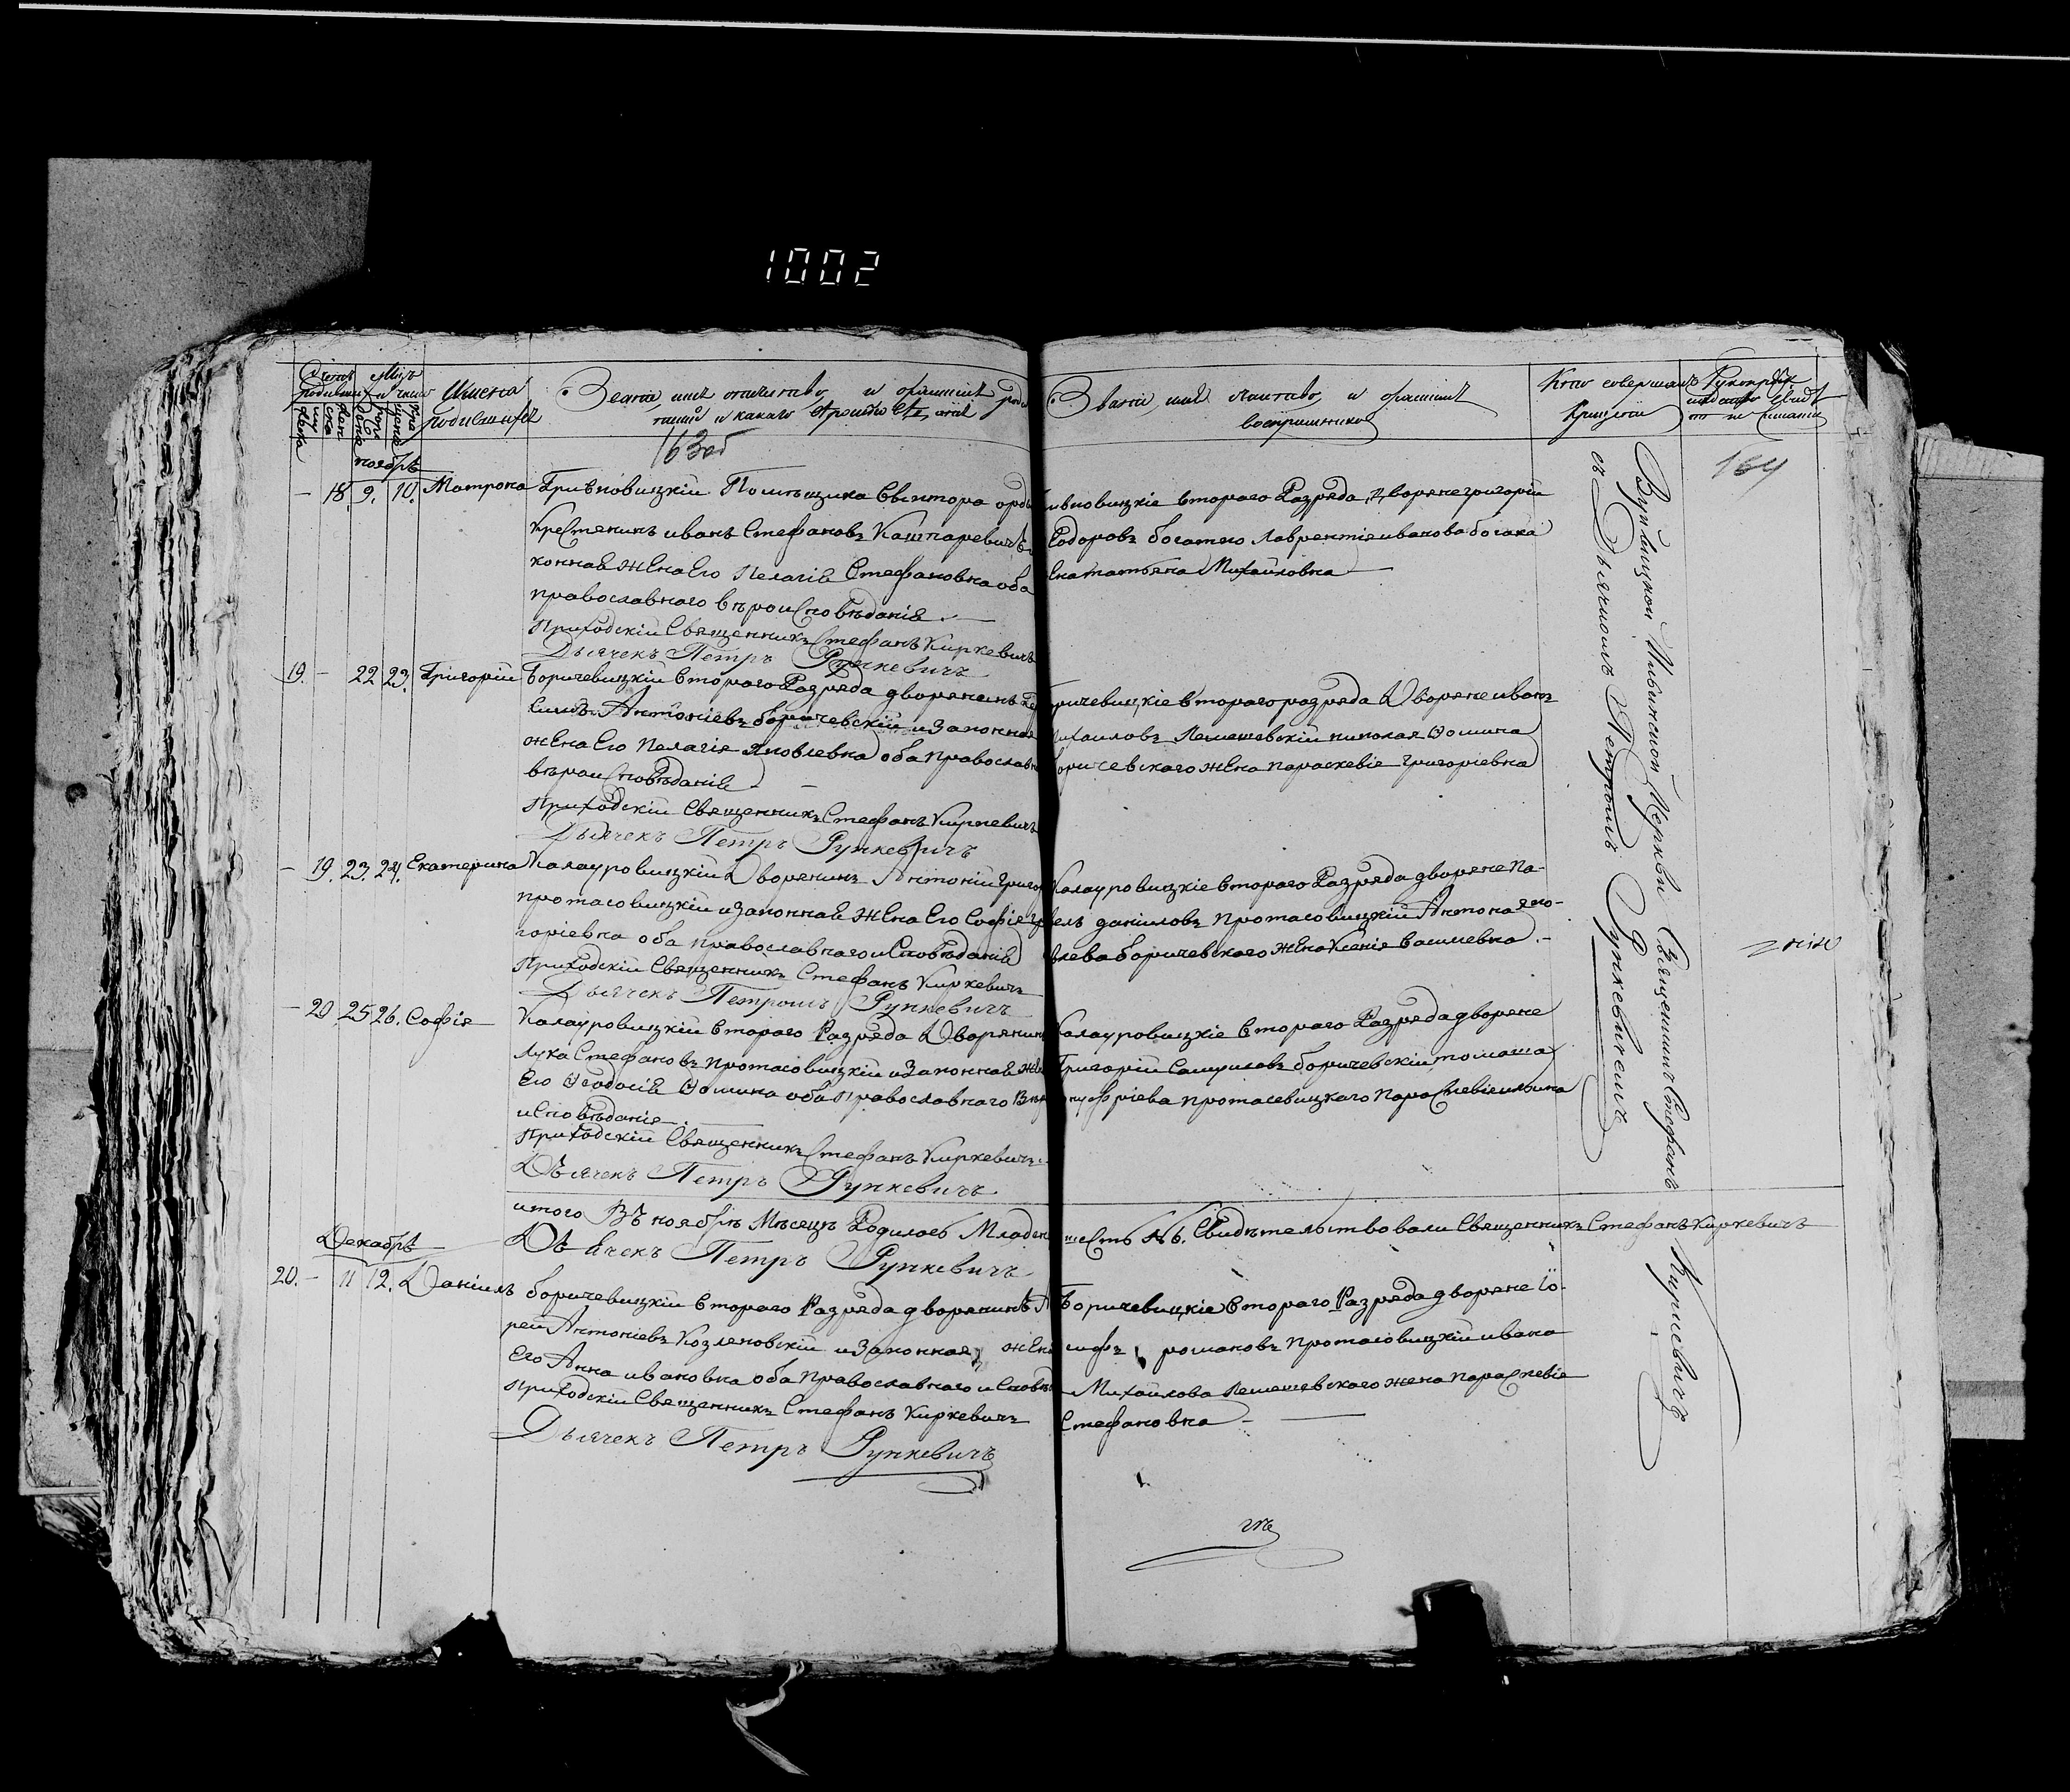 1002
Имена
родившихся
Званіе, имя, отчество, и фамилія
какого
163об
Званіе, имя, отчество, и фамилія
воспріемниковъ
Кто совершалъ
крещеніе
164
ноябрь
18. 9. 10. Матрона
Гривковицкій Помѣщика
Крестянинъ иванъ Стефановъ Кашпаревичъ
конная жена Его Пелагія Стефановка оба
православного вѣроисповѣданія
Приходскій Священникъ Стефанъ Киркевичъ
Дьячекъ Петръ Рункевичъ
второго Разряда дворяне григорій
Федоровъ богатого Лаврентія иванова
татьяна Михайловна
19. - 22 23. Григорій
Боричевицкій второго Разряда дворянинъ
Антоніевъ боричевскій и законная
жена Его Пелагія Яковлевна оба Православн
вѣроисповѣданія
Приходскій Священникъ Стефанъ Киркевичъ
Дьячекъ Петръ Рункевичъ
ричевицкіе второго разряда Дворяне иванъ
ихаиловъ Лемешевскій николая Ѳомина
боричевского жена параскевіе григоріевна
- 19. 23. 24. Екатерина
Калауровицкій Дворянинъ Антоній григор
протасовицкій и законная жена Его Софія гри
горіевна оба православного исповѣданія
Приходскій Священникъ Стефанъ Киркевичъ
Дьячекъ Петромъ Рункевичъ
Калауровицкіе второго Разряда дворяне Па-
велъ даніиловъ протасовицкій Антона яко-
влева боричевского жена Ксенія василевна.
- 20. 25 26. Софія
Калауровицкій второго Разряда Дворянинъ
Лука Стефановъ протасовицкій и законная жена
Его Ѳеодосія Ѳомина оба православного Вѣр
исповѣданія
Приходскій Священникъ Стефанъ Киркевичъ
Дьячекъ Петръ Рункевичъ
Калауровицкіе второго Разряда дворяне
Григорій Самуиловъ боричевскій томаша
онуфріева протасевицкого
итого Въ ноябрѣ Мѣсецѣ Родилось Младен шесть №6. Свидѣтельствовали Священникъ Стефанъ Киркевичъ
Дьячекъ Петръ Рункевичъ
Декабрь
20. - 11 12. Даніилъ
боричевицкій второго Разряда дворянинъ
рей Антоніевъ Козляковскій и законная жена
Его Анна ивановка оба Православного исповѣ
Приходскій Священникъ Стефанъ Киркевичъ
Дьячекъ Петръ Рункевичъ
Боричевицкіе второго Разряда дворяне Іо-
сифъ романовъ протасовицкій ивана
Михайлова Лемешевского жена параскевіе
Стефановна
Церкви Священникъ Стефанъ
Киркевичъ
съ Дьячкомъ Петромъ Рункевичемъ